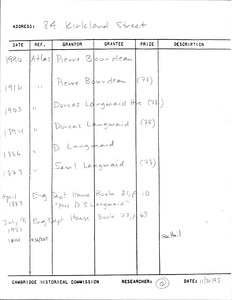 ADDRESS: 84 Kirkland Street
DATE REF. GRANTOR GRANTEE PRICE DESCRIPTION
1930 Atlas Pierre Bourdeau
1916 " Pierre Bourdeau (78)
1903 " Dorcas Langmaid (78)
1894 " Dorcas Langmaid (78)
1886 " D. Langmaid
1873 " Saml Langmaid (78)
April Eng. Dept House Book 21, p 10
1887 "Mrs D S Langmaid"
July Eng. Dept House Book 77, p. 63
CAMBRIDGE HISTORICAL COMMISSION RESEARCHER: DATE: